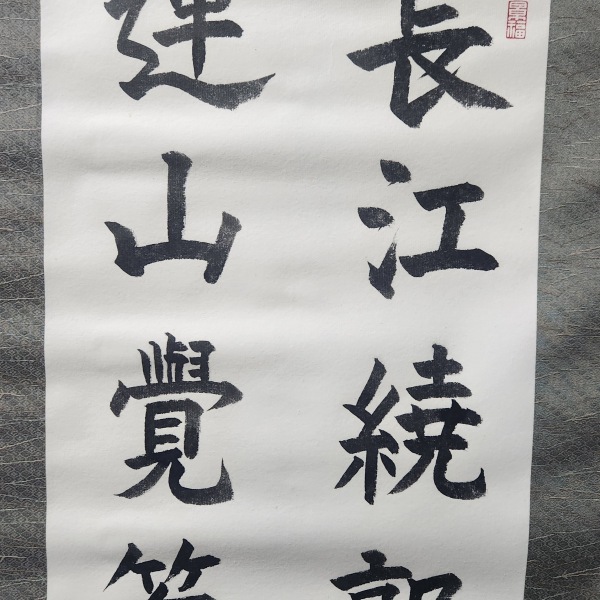 長江繞郭
連山覺